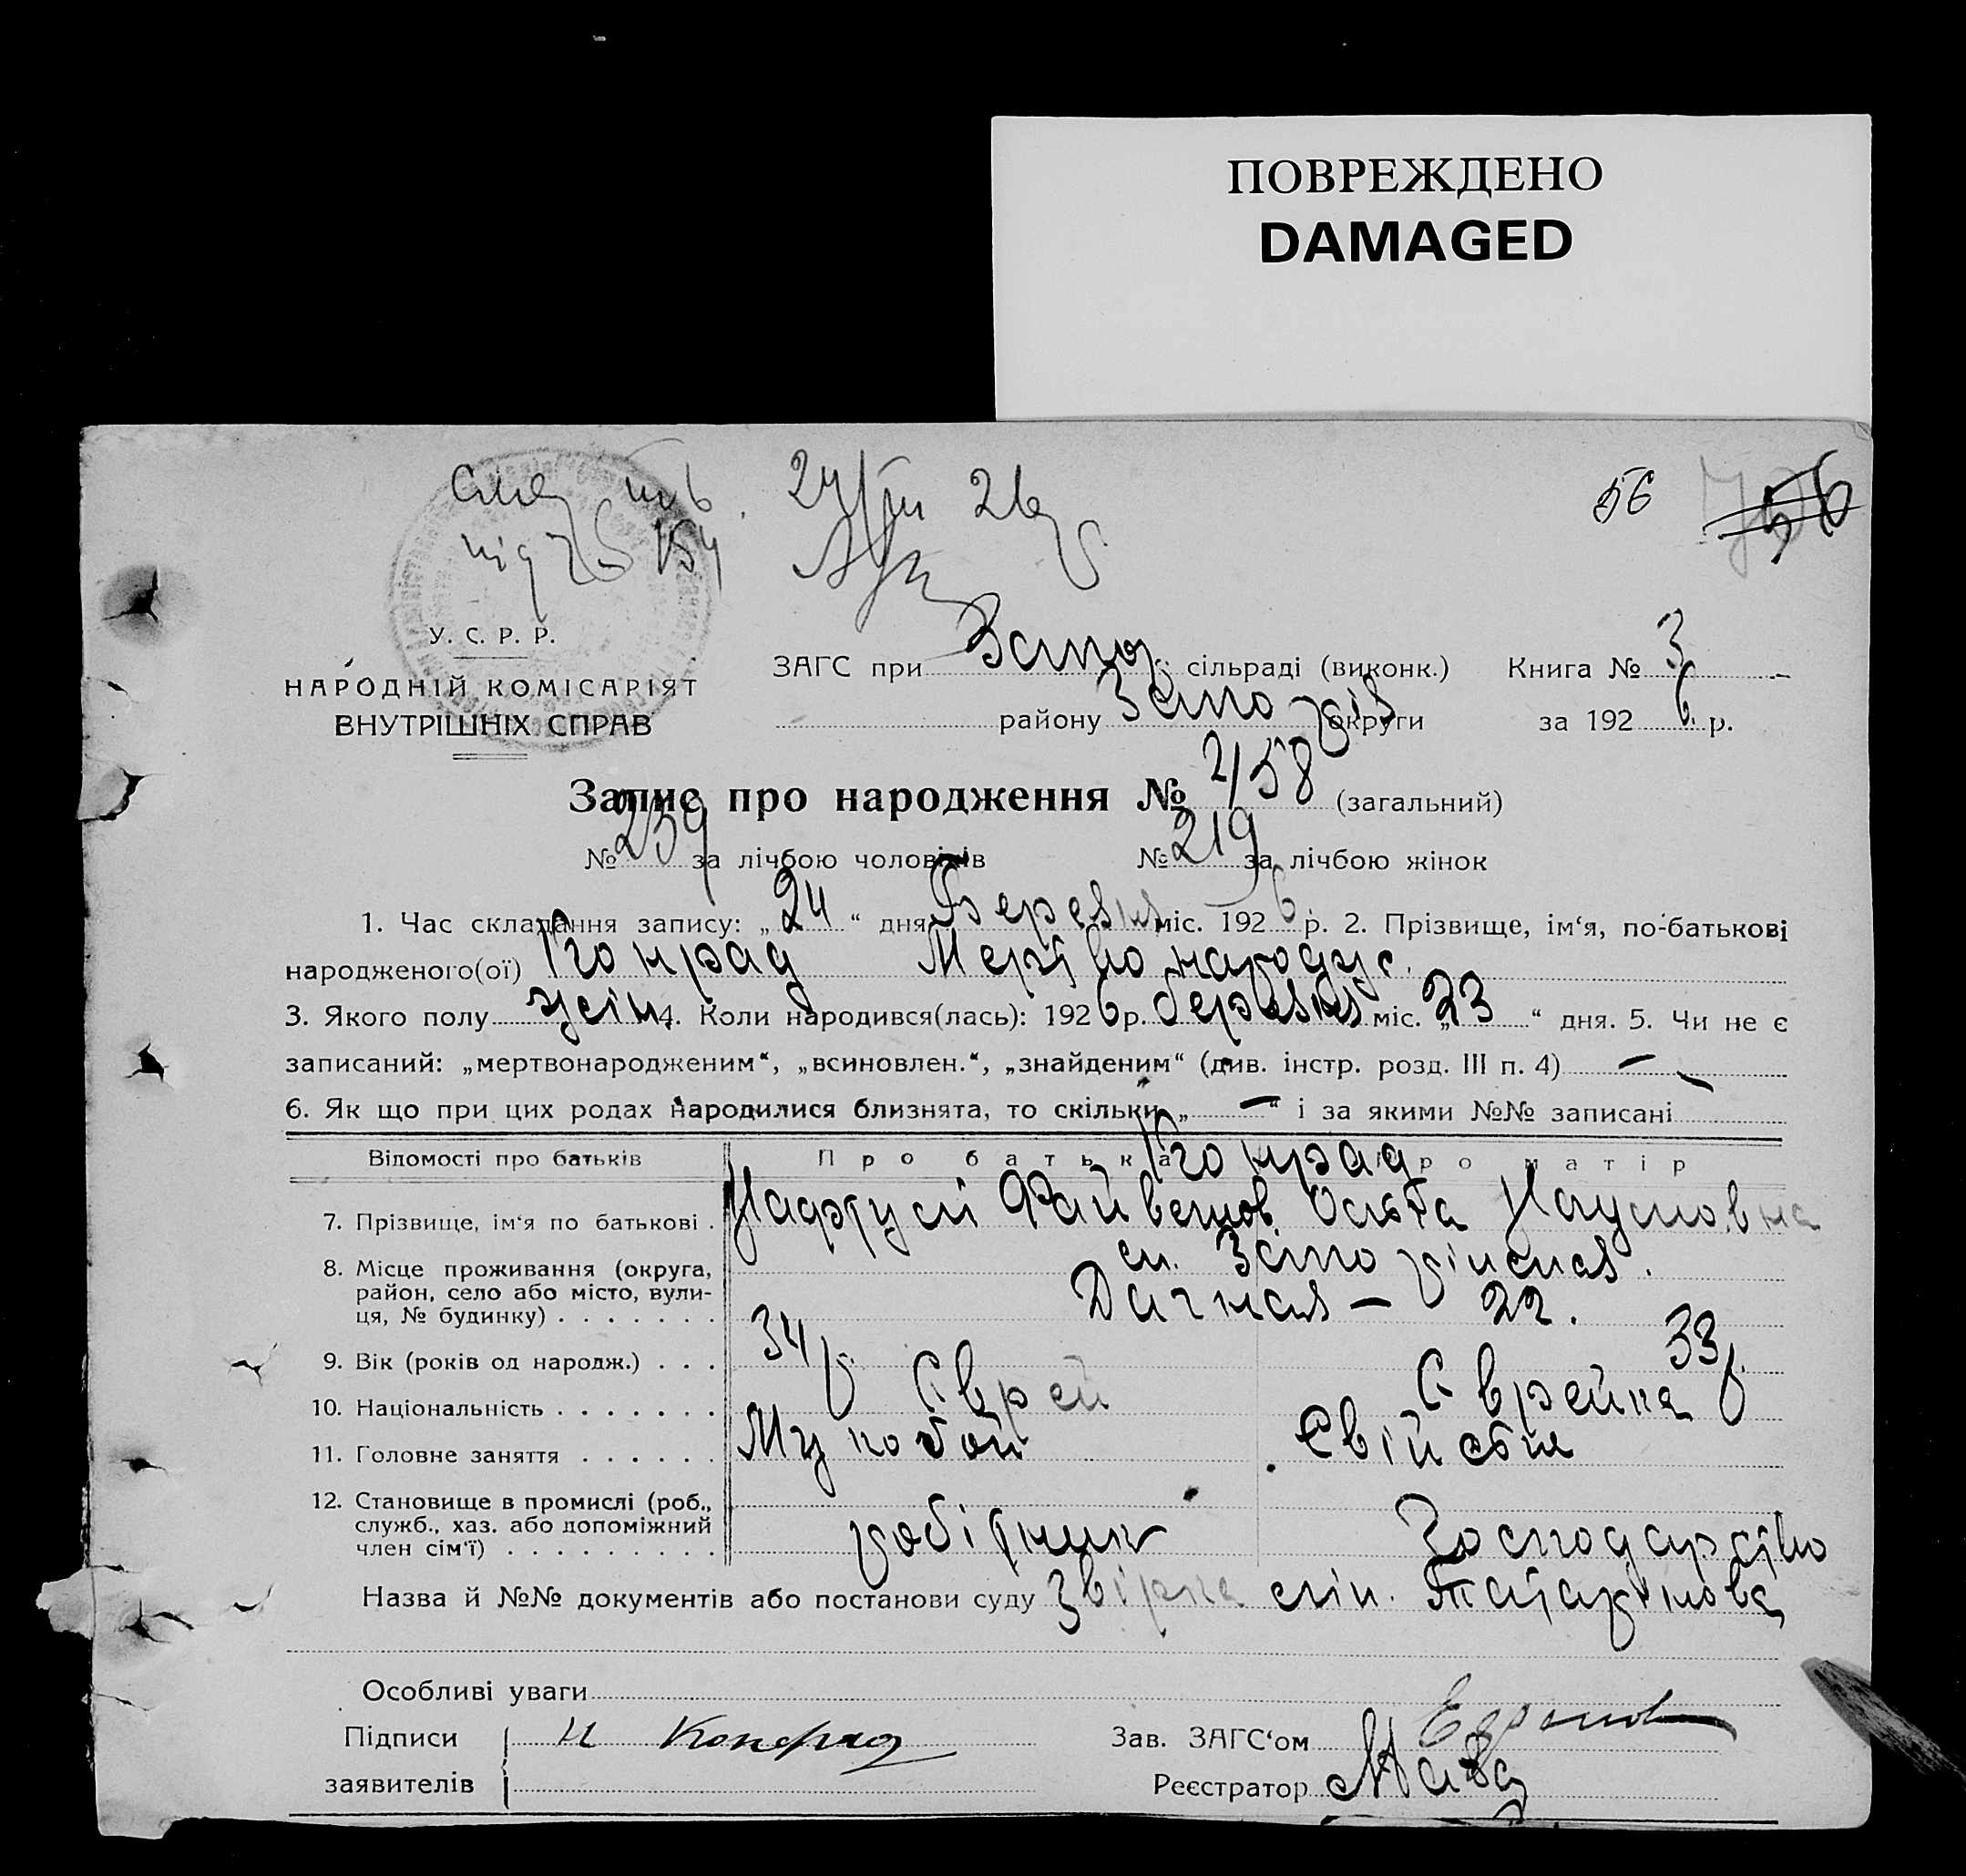 ПОВРЕЖДЕНО
DAMAGED
24/III 26
56 56
У. С. Р. Р.
НАРОДНІЙ КОМІСАРІЯТ
ВНУТРІШНІХ СПРАВ
ЗАГС при Запор. сільраді (виконк.) Книга № 3
району Запоріз округи за 192 6 р.
Запис про народження № 458 (загальний)
№ 239 за лічбою чоловіків № 219 за лічбою жінок
1. Час складання запису: „24“ дня Березня міс. 192 6 р. 2. Прізвище, ім‘я, по-батькові
народженого(ої) Конрад Мертвонародж.
3. Якого полу жін. 4. Коли народився(лась): 192 6 р. березня міс. „23“ дня. 5. Чи не є
записаний: „мертвонародженим“, „всиновлен.“, „знайденим“ (див. інстр. розд. III п. 4) —
6. Як що при цих родах народилися близнята, то скільки „—“ і за якими №№ записані
Відомості про батьків Про батька Про матір
Конрад
7. Прізвище, ім‘я по батькові . Нафтулй Файвешов.
8. Місце проживання (округа, ст. Запоріжжя.
район, село або місто, вули-
ця, № будинку) . . . . . . . Дачная — 22.
9. Вік (років од народж.) . . . 34 р. 33 р.
10. Національність . . . . . . . Єврей Єврейка
11. Головне заняття . . . . . .
12. Становище в промислі (роб.,
служб., хаз. або допоміжний
член сім‘ї) . . . . . . . . . робітник Господарство
Назва й №№ документів або постанови суду
Особливі уваги
Підписи Н Конрад Зав. ЗАГС‘ом
заявителів Реєстратор